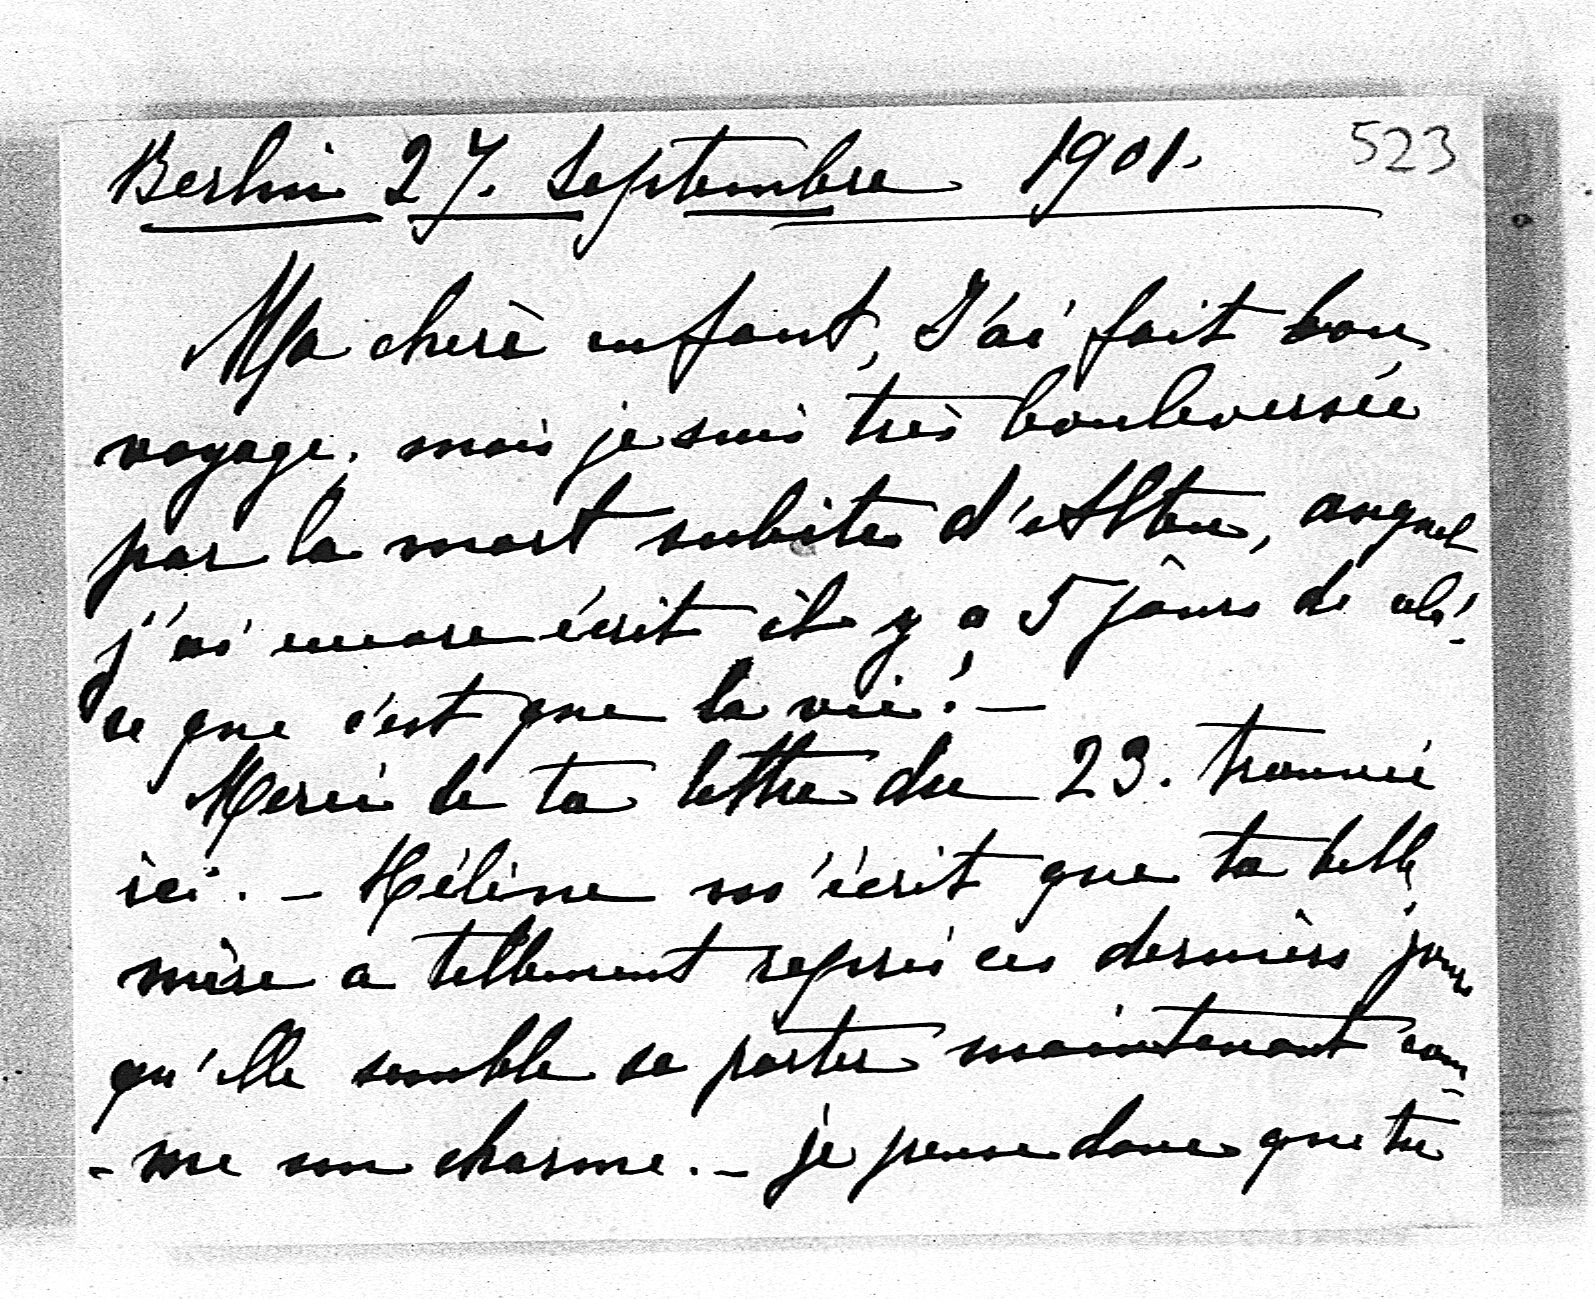 Berlin 27. Septembre 1901. 523
Ma cherè enfant, J'ai fait bon
voyage. mais je suis très bouleversée
par la mort subite d'Alten, auquel
j'ai encore écrit il y a 5 jours de
ce que c'est que la vie! —
Merci de ta lettre du 23. trouvée
ici. — Hélène m'écrit que ta belle
mère a tellement repris ces derniers jours
qu'elle semble se porter maintenant com-
-me un charme. — je pense donc que tu